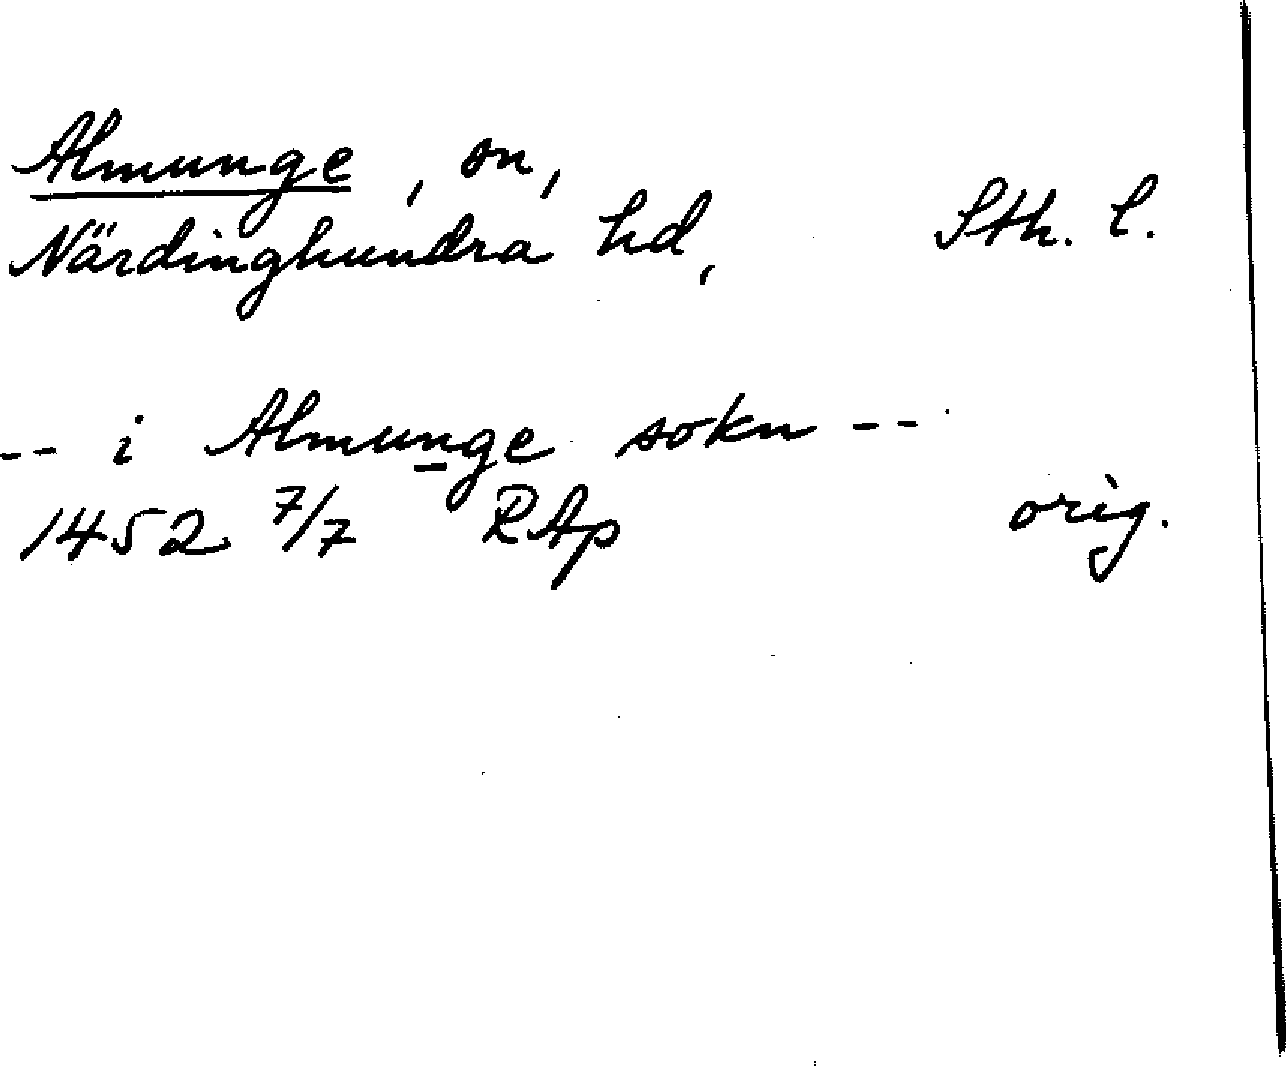 Almunge, sn,
Närdinghundra hd, Sth. l.
-- i Almunge sokn --
1452 7/7 RAp orig.